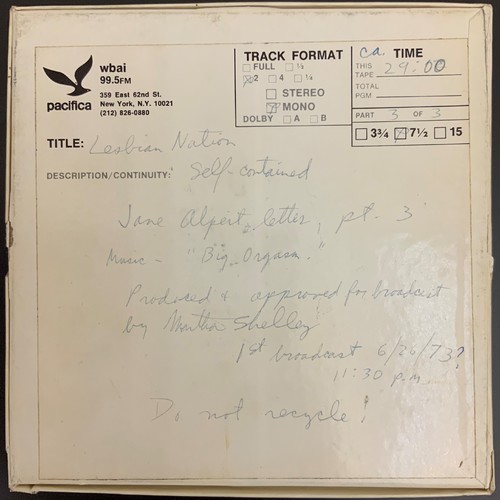 wbai
99.5FM
359 East 62nd St.
New York, N.Y. 10021
(212) 826-0880
pacifica
TRACK FORMAT
FULL ½
2 4 ¼
STEREO
MONO
DOLBY A B
ca. TIME
THIS TAPE 29:00
TOTAL PGM
PART 3 OF 3
3¾ 7½ 15
TITLE: Lesbian Nation
DESCRIPTION/CONTINUITY: Self-contained
Jane Alpert letter, pt. 3
Music - "Big Orgasm."
Produced & approved for broadcast
by Martha Shelley
1st broadcast 6/26/73?
11:30 p.m.
Do not recycle!